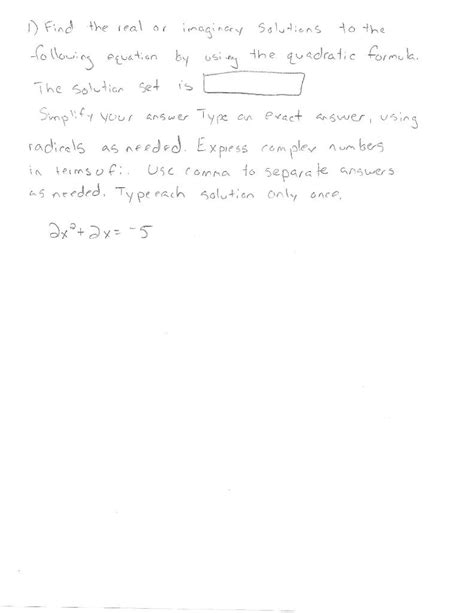 1) Find the real or imaginary solutions to the
following equation by using the quadratic formula.
The solution set is
Simplify your answer Type an exact answer, using
radicals as needed. Express complex numbers
in terms of i. Use comma to separate answers
as needed. Type each solution only once.
2x²+2x=-5